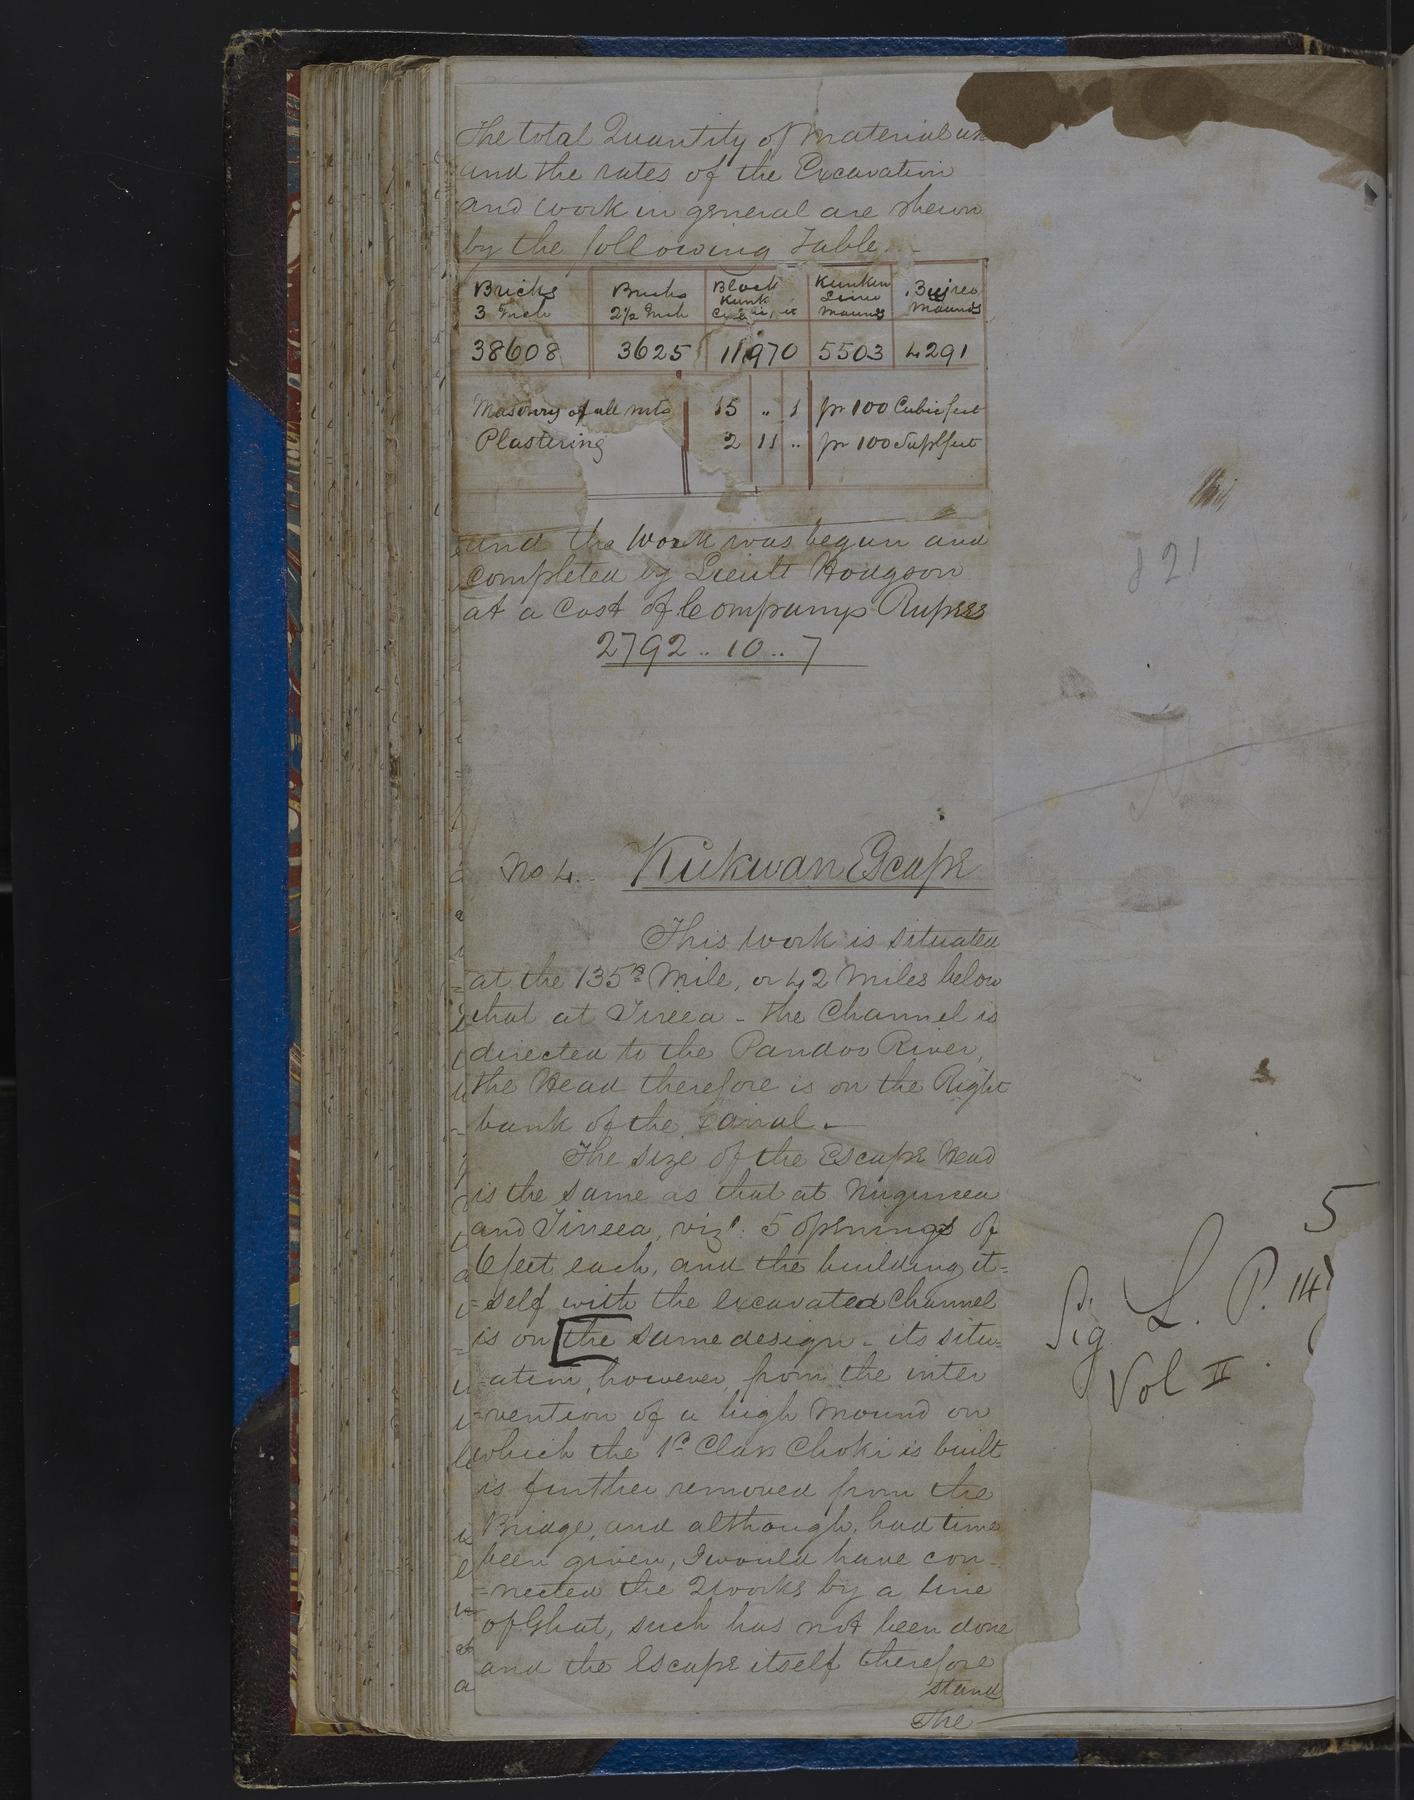 The total Quantity of Material
and the rates of the Excavation
and work in general are shewn
by the following Table. -
Bricks 3 Inch | Bricks 2½ Inch | Block Kunk | Kunkur Lime Maunds | Bujree Maunds
38608 | 3625 | 11970 | 5503 | 4291
Masonry of all sorts | 15 | .. | 1 | pr 100 Cubic feet
Plastering | 2 | 11 | .. | pr 100 Suplfeet
and the Work was begun and
completed by Lieutt Hodgson
at a Cost of Companys Rupees
2792 .. 10 .. 7
821
No 4. - Kukwan Escape
This work is situated
at the 135th Mile, or 42 Miles below
that at Jineea - the Channel is
directed to the Pandoo River,
the Head therefore is on the Right
bank of the Canal. -
The size of the Escape Head
is the same as that at
and Jineea, vizt. 5 openings of
6 feet each, and the building it=
=self with the excavated Channel
is on [the same design - its situ=
=ation, however, from the inter
=vention of a high Mound on
which the 1st Class Choki is built
is further removed from the
Bridge, and although, had time
been given, I would have con-
=nected the 2 works by a line
of Ghat, such has not been done
and the Escape itself therefore
stand
The
5
Sig L. P. 141
Vol II